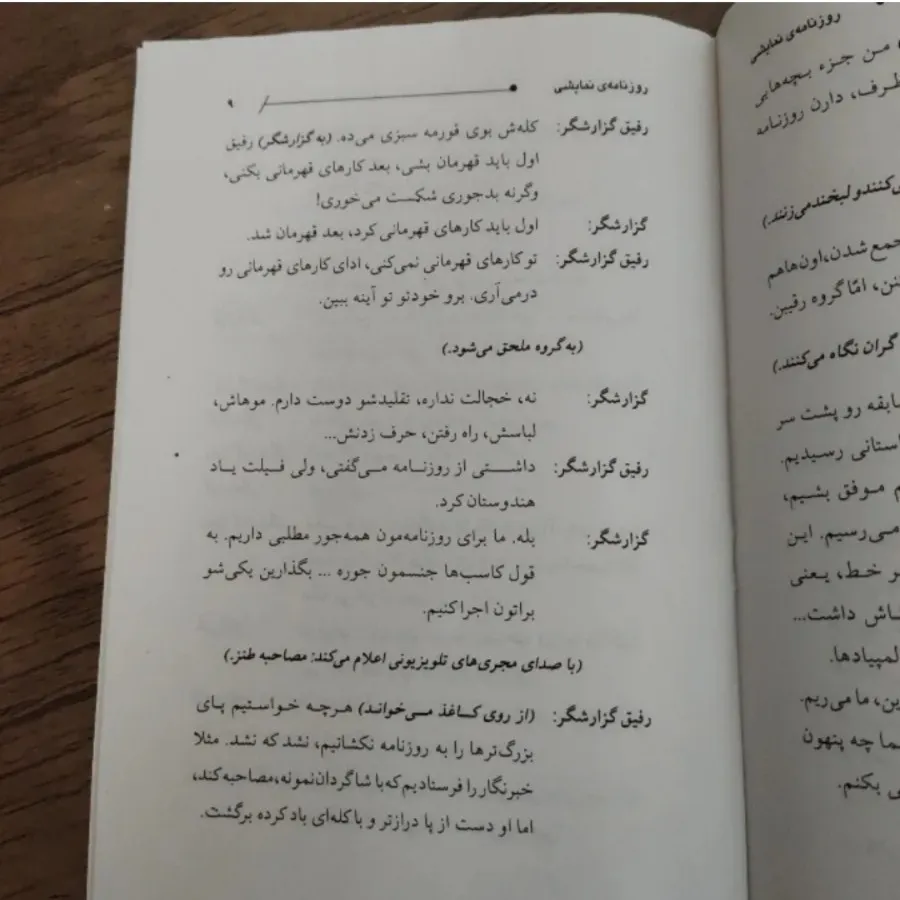 روزنامه‌ی نمایشی ۹
رفیق گزارشگر: کله‌ش بوی قورمه سبزی می‌ده. (به گزارشگر) رفیق
اول باید قهرمان بشی، بعد کارهای قهرمانی بکنی،
وگرنه بدجوری شکست می‌خوری!
گزارشگر: اول باید کارهای قهرمانی کرد، بعد قهرمان شد.
رفیق گزارشگر: تو کارهای قهرمانی نمی‌کنی، ادای کارهای قهرمانی رو
درمی‌آری. برو خودتو تو آینه ببین.
(به گروه ملحق می‌شود.)
گزارشگر: نه، خجالت نداره، تقلیدشو دوست دارم. موهاش،
لباسش، راه رفتن، حرف زدنش...
رفیق گزارشگر: داشتی از روزنامه می‌گفتی، ولی فیلت یاد
هندوستان کرد.
گزارشگر: بله. ما برای روزنامه‌مون همه‌جور مطلبی داریم. به
قول کاسب‌ها جنسمون جوره ... بگذارین یکی‌شو
براتون اجرا کنیم.
(با صدای مجری‌های تلویزیونی اعلام می‌کند: مصاحبه طنز.)
رفیق گزارشگر: (از روی کاغذ می‌خواند) هرچه خواستیم پای
بزرگ‌ترها را به روزنامه نکشانیم، نشد که نشد. مثلا
خبرنگار را فرستادیم که با شاگردان نمونه، مصاحبه کند،
اما او دست از پا درازتر و با کله‌ای باد کرده برگشت.
روزنامه‌ی نمایشی
من جزء بچه‌هایی
طرف، دارن روزنامه
ی‌کنند و لبخند می‌زنند.)
جمع شدن، اون‌ها هم
نن، امّا گروه رقیبن.
گران نگاه می‌کنند.)
سابقه رو پشت سر
استانی رسیدیم.
م موفق بشیم،
می‌رسیم. این
ر خط، یعنی
اش داشت...
لمپیادها.
ین، ما می‌ریم.
ما چه پنهون
ی بکنم.